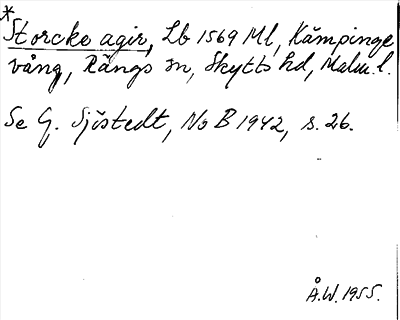 *
Storcke agir, Lb 1569 Ml, Kämpinge
vång, Rängs sn, Skytts hd, Malm. l.
Se G. Sjöstedt, NoB 1942, s. 26.
Å.W. 1955.